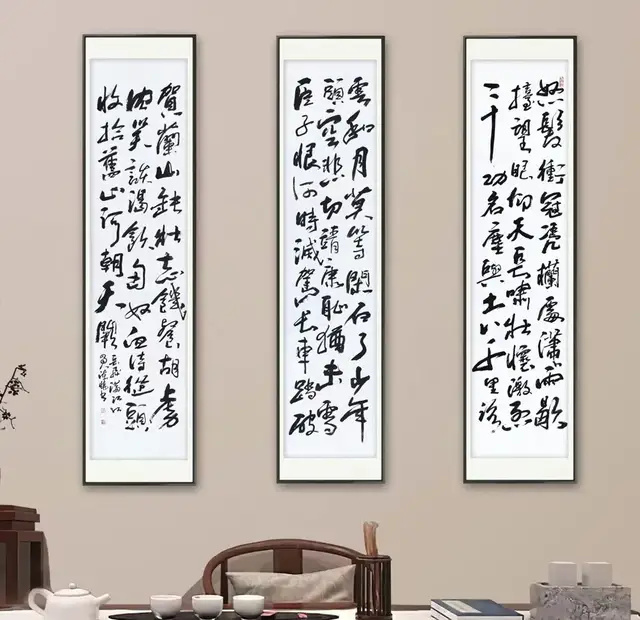 怒髮衝冠憑欄處瀟雨歇
擡望眼仰天長嘯壯懷激烈
三十功名塵與土八千里路
雲和月莫等閒白了少年
頭空悲切靖康恥猶未雪
臣子恨何時滅駕長車踏破
賀蘭山缺壯志饑餐胡虜
肉笑談渴飲匈奴血待從頭
收拾舊山河朝天闕
岳飛滿江紅